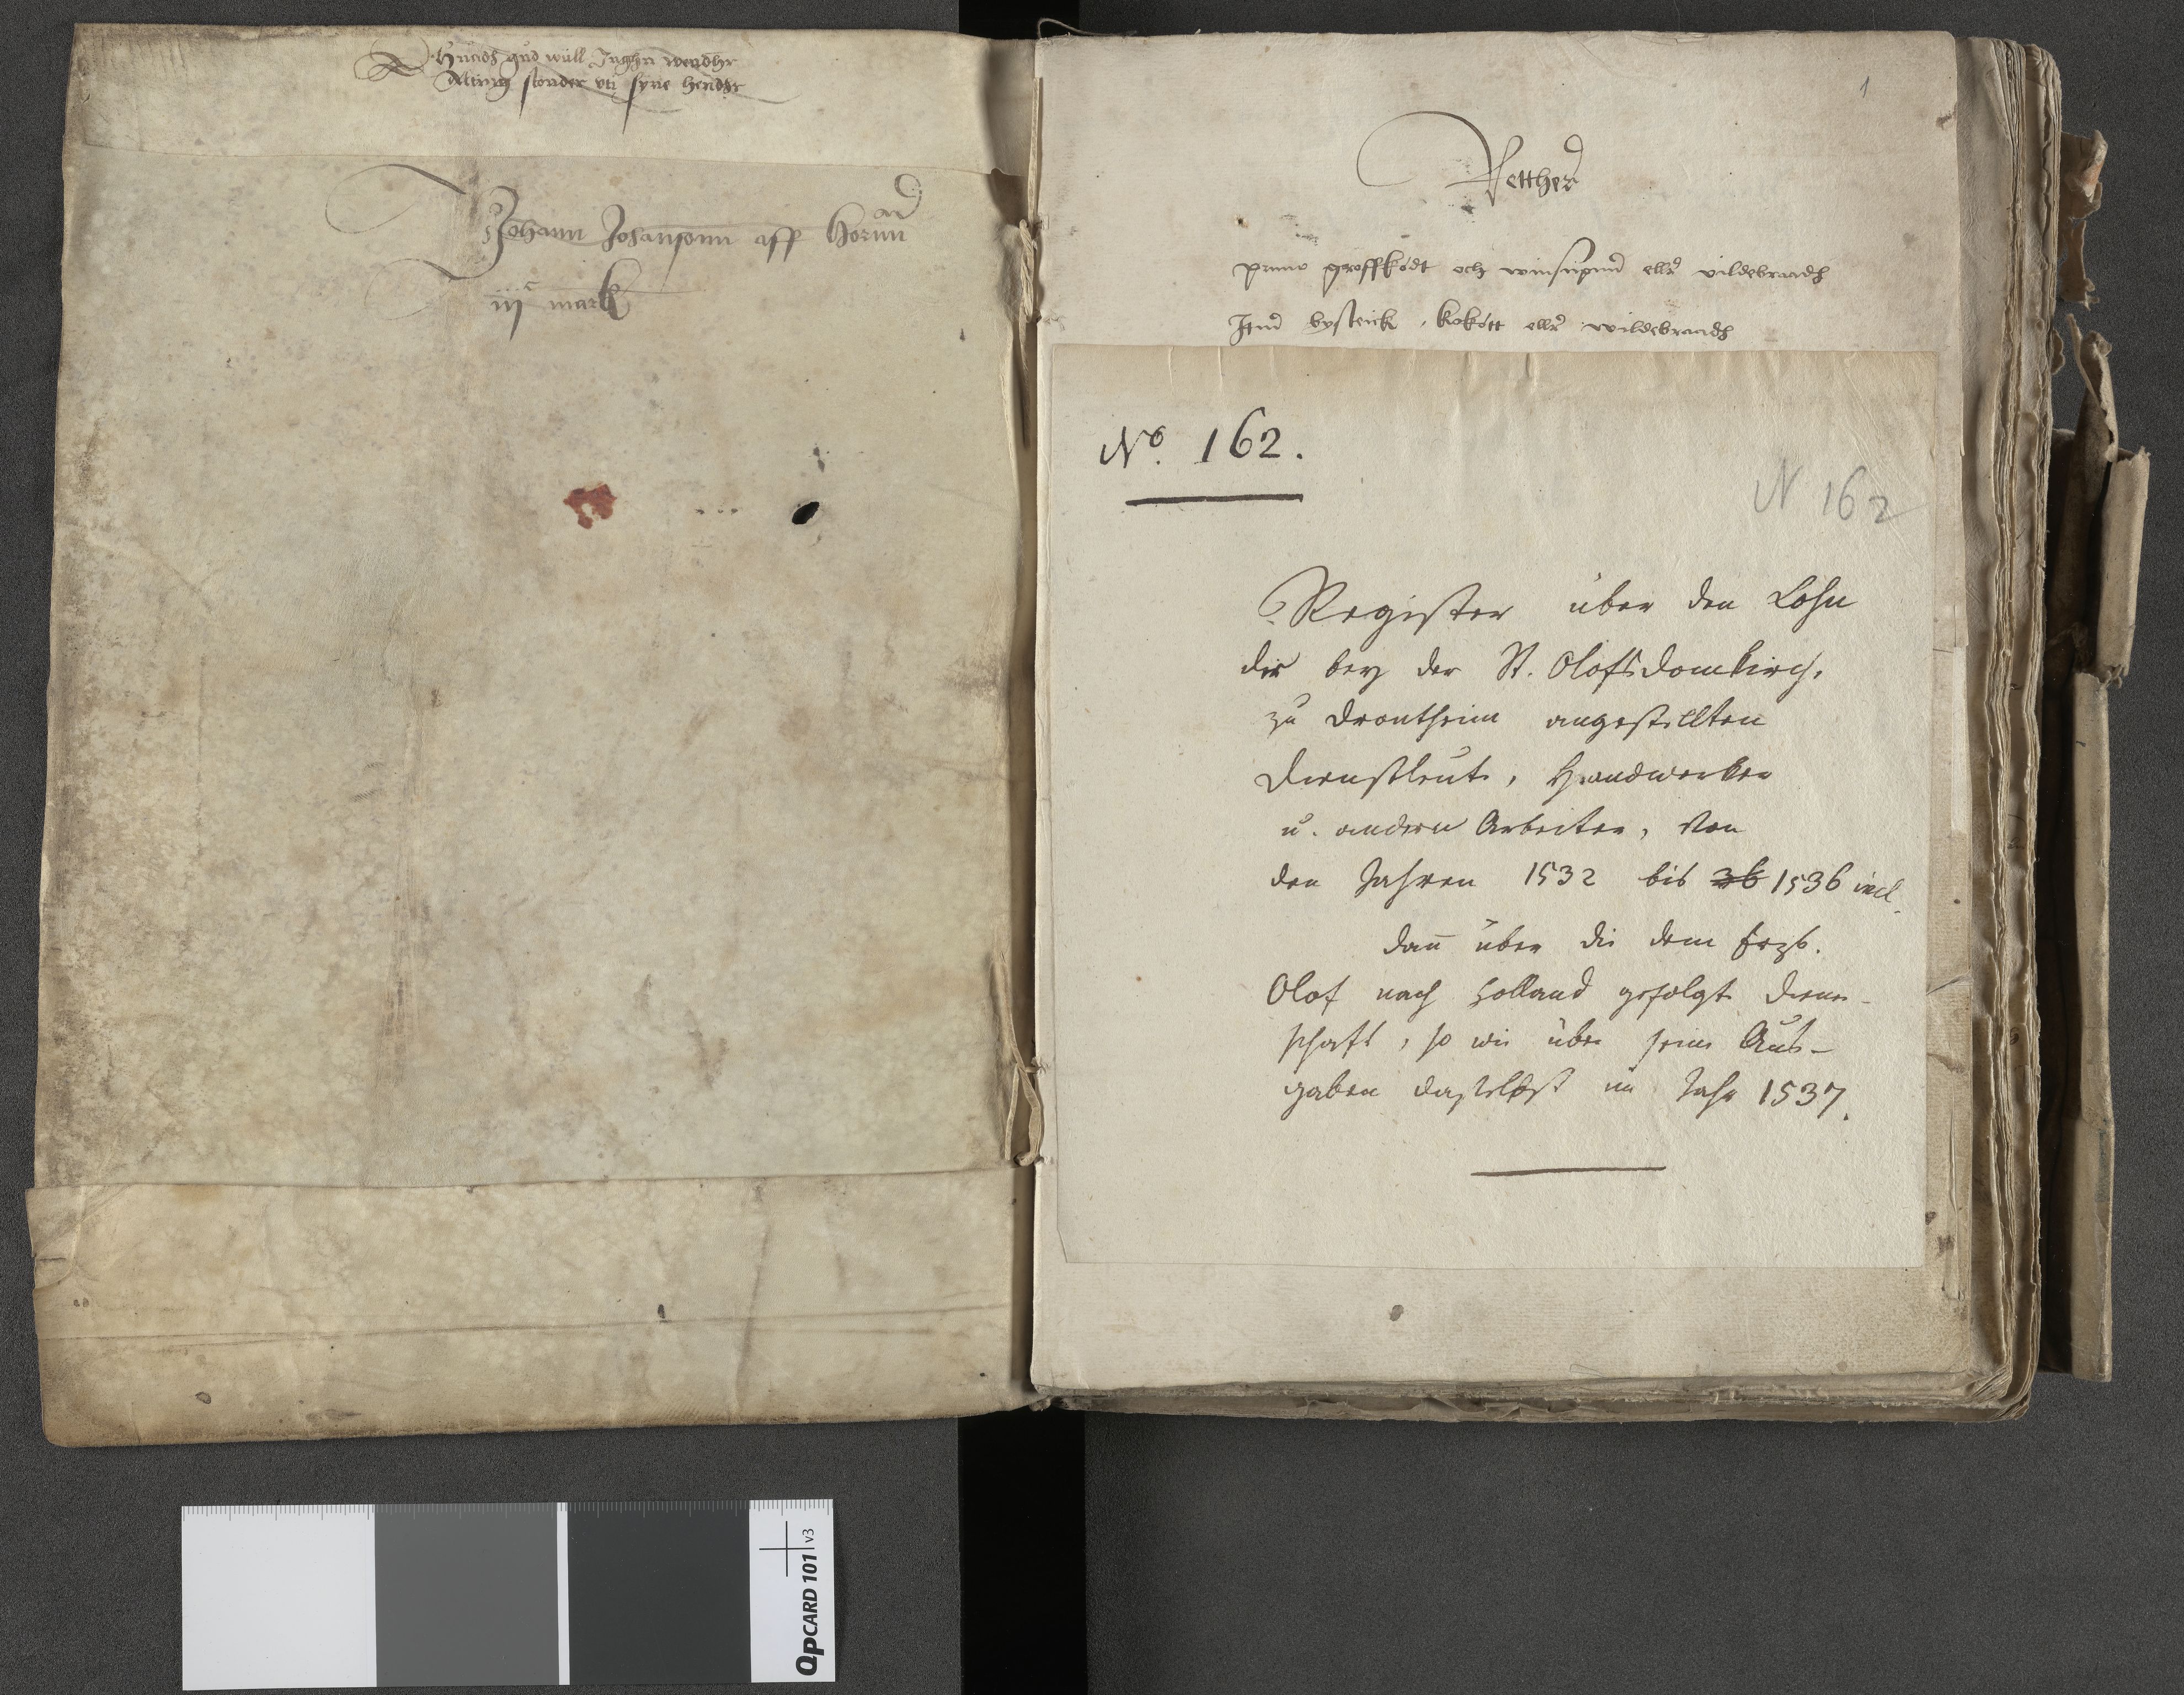 Huadh gud will Inghn wendhr
Alting stonder vti syne hendhr
Johann Johansonn aff Hornn
iijc mark
1
Retther
primo groffkødt och winsúpnn ellr vildebraadh
Itm bysteick, kokøtt ellr wildebraadh
No. 162.
N 162
Register über den Lohn
der bey der St. Olofsdomkirch.
zu Drontheim angestellten
Dienstleute, Handwerker
u. andern Arbeiter, von
den Jahren 1532 bis 36 1536 incl.
dann über die dem Erzb.
Olof nach Holland gefolgte Diener-
schaft, so wie über seine Aus-
gaben daselbst im Jahr 1537.
QPCARD 101 v3